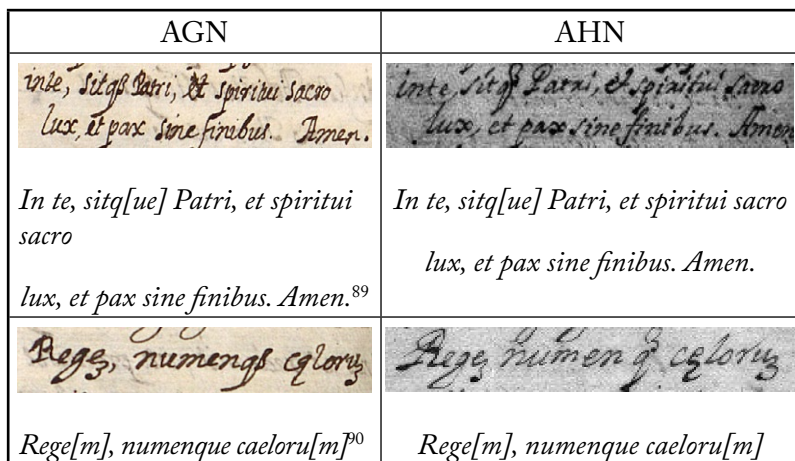 AGN
AHN
inte, sitqȝ Patri, et spiritui sacro
lux, et pax sine finibus. Amen.
In te, sitq[ue] Patri, et spiritui
sacro
lux, et pax sine finibus. Amen.89
inte, sitqȝ Patri, et spiritui sacro
lux, et pax sine finibus. Amen
In te, sitq[ue] Patri, et spiritui sacro
lux, et pax sine finibus. Amen.
Regeȝ, numenqȝ cęloruȝ
Rege[m], numenque caeloru[m]90
Regeȝ numenqȝ cęloruȝ
Rege[m], numenque caeloru[m]